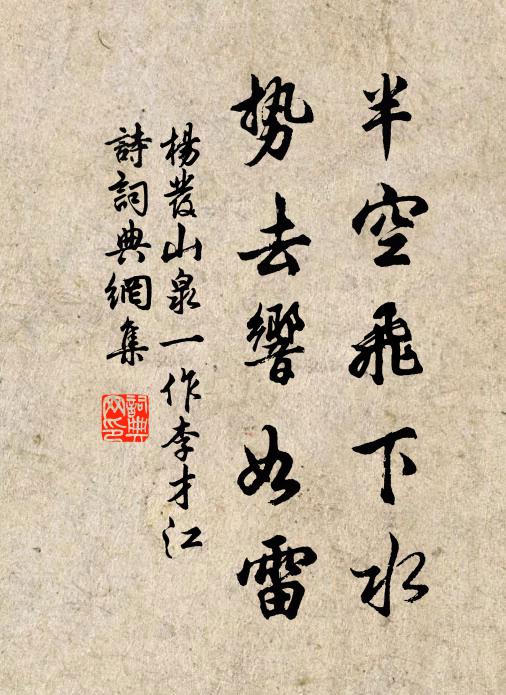 半空飛下水
勢去響如雷
楊發山泉一作李才江
詩詞典網集
詞典網印